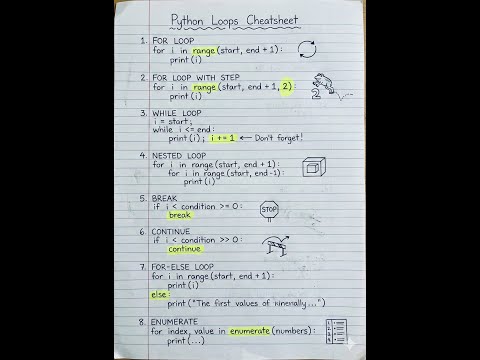 Python Loops Cheatsheet
1. FOR LOOP
for i in range(start, end + 1):
print(i)
2. FOR LOOP WITH STEP
for i in range(start, end + 1, 2):
print(i)
2
3. WHILE LOOP
i = start;
while i <= end:
print(i); i += 1 ← Don't forget!
4. NESTED LOOP
for i in range(start, end + 1):
for i in range(start, end -1):
print(i)
5. BREAK
if i < condition >= 0:
break
STOP
6. CONTINUE
if i < condition >> 0:
continue
7. FOR-ELSE LOOP
for i in range(start, end + 1):
print(i)
else:
print("The first values of ninenally...")
8. ENUMERATE
for index, value in enumerate(numbers):
print(...)